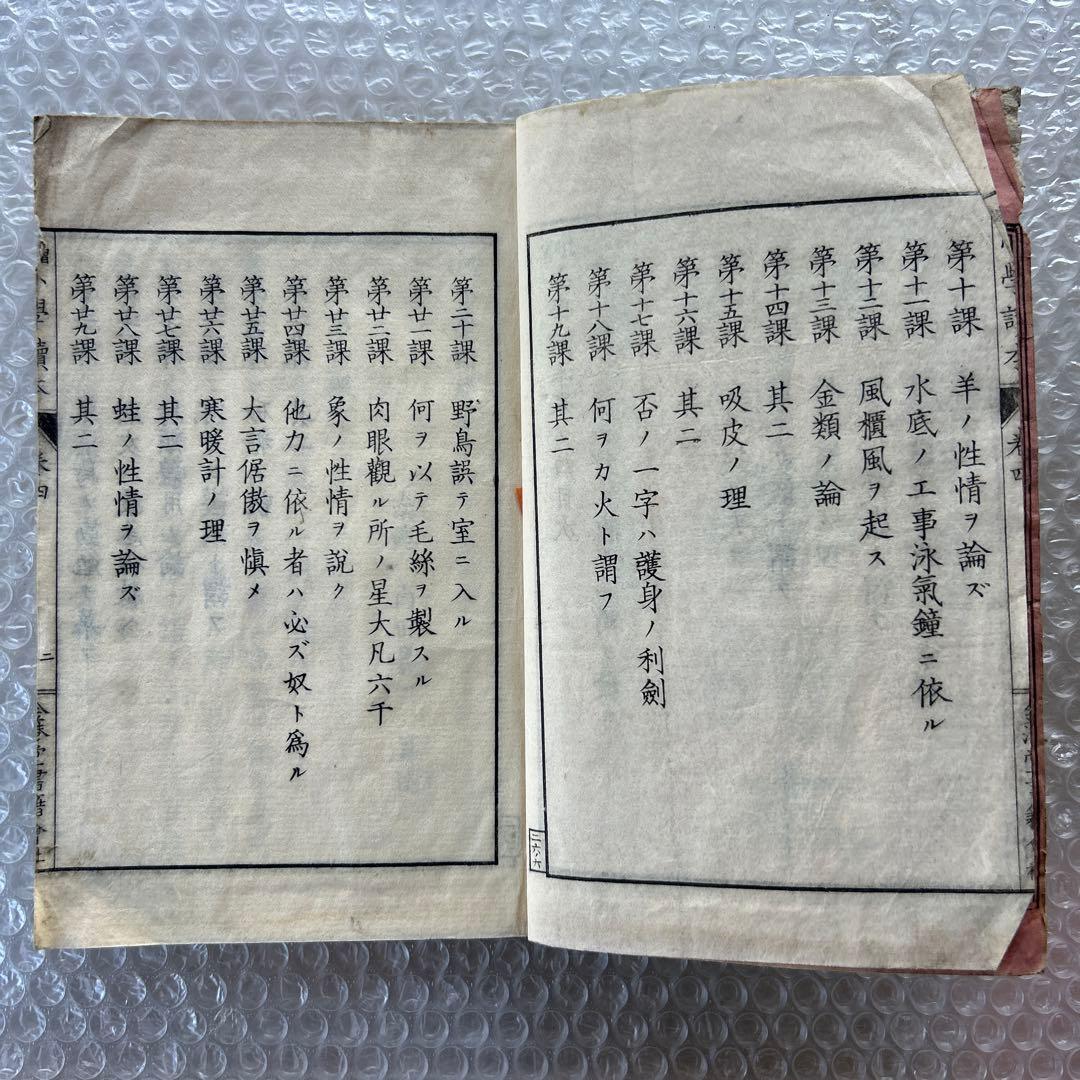 第十課 羊ノ性情ヲ論ズ
第十一課 水底ノ工事泳氣鐘ニ依ル
第十二課 風櫃風ヲ起ス
第十三課 金類ノ論
第十四課 其二
第十五課 吸皮ノ理
第十六課 其二
第十七課 否ノ一字ハ護身ノ利劍
第十八課 何ヲカ火ト謂フ
第十九課 其二
二六六
第二十課 野鳥誤テ室ニ入ル
第廿一課 何ヲ以テ毛絲ヲ製スル
第廿二課 肉眼觀ル所ノ星大凡六千
第廿三課 象ノ性情ヲ說ク
第廿四課 他力ニ依ル者ハ必ズ奴ト爲ル
第廿五課 大言倨傲ヲ愼メ
第廿六課 寒暖計ノ理
第廿七課 其二
第廿八課 蛙ノ性情ヲ論ズ
第廿九課 其二
小學讀本 卷四 二